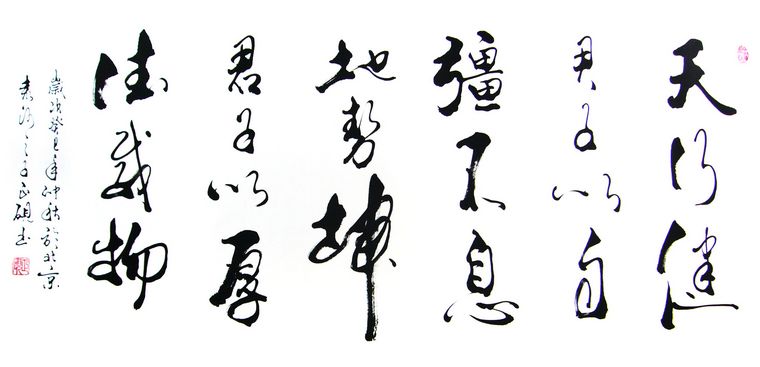 天行健
君子以自
彊不息
地勢坤
君子以厚
德載物
歲次癸巳年仲秋於北京